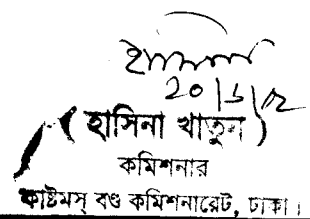 হাসিনা
( হাসিনা খাতুন )
কমিশনার
কাষ্টমস্ বণ্ড কমিশনারেট, ঢাকা।